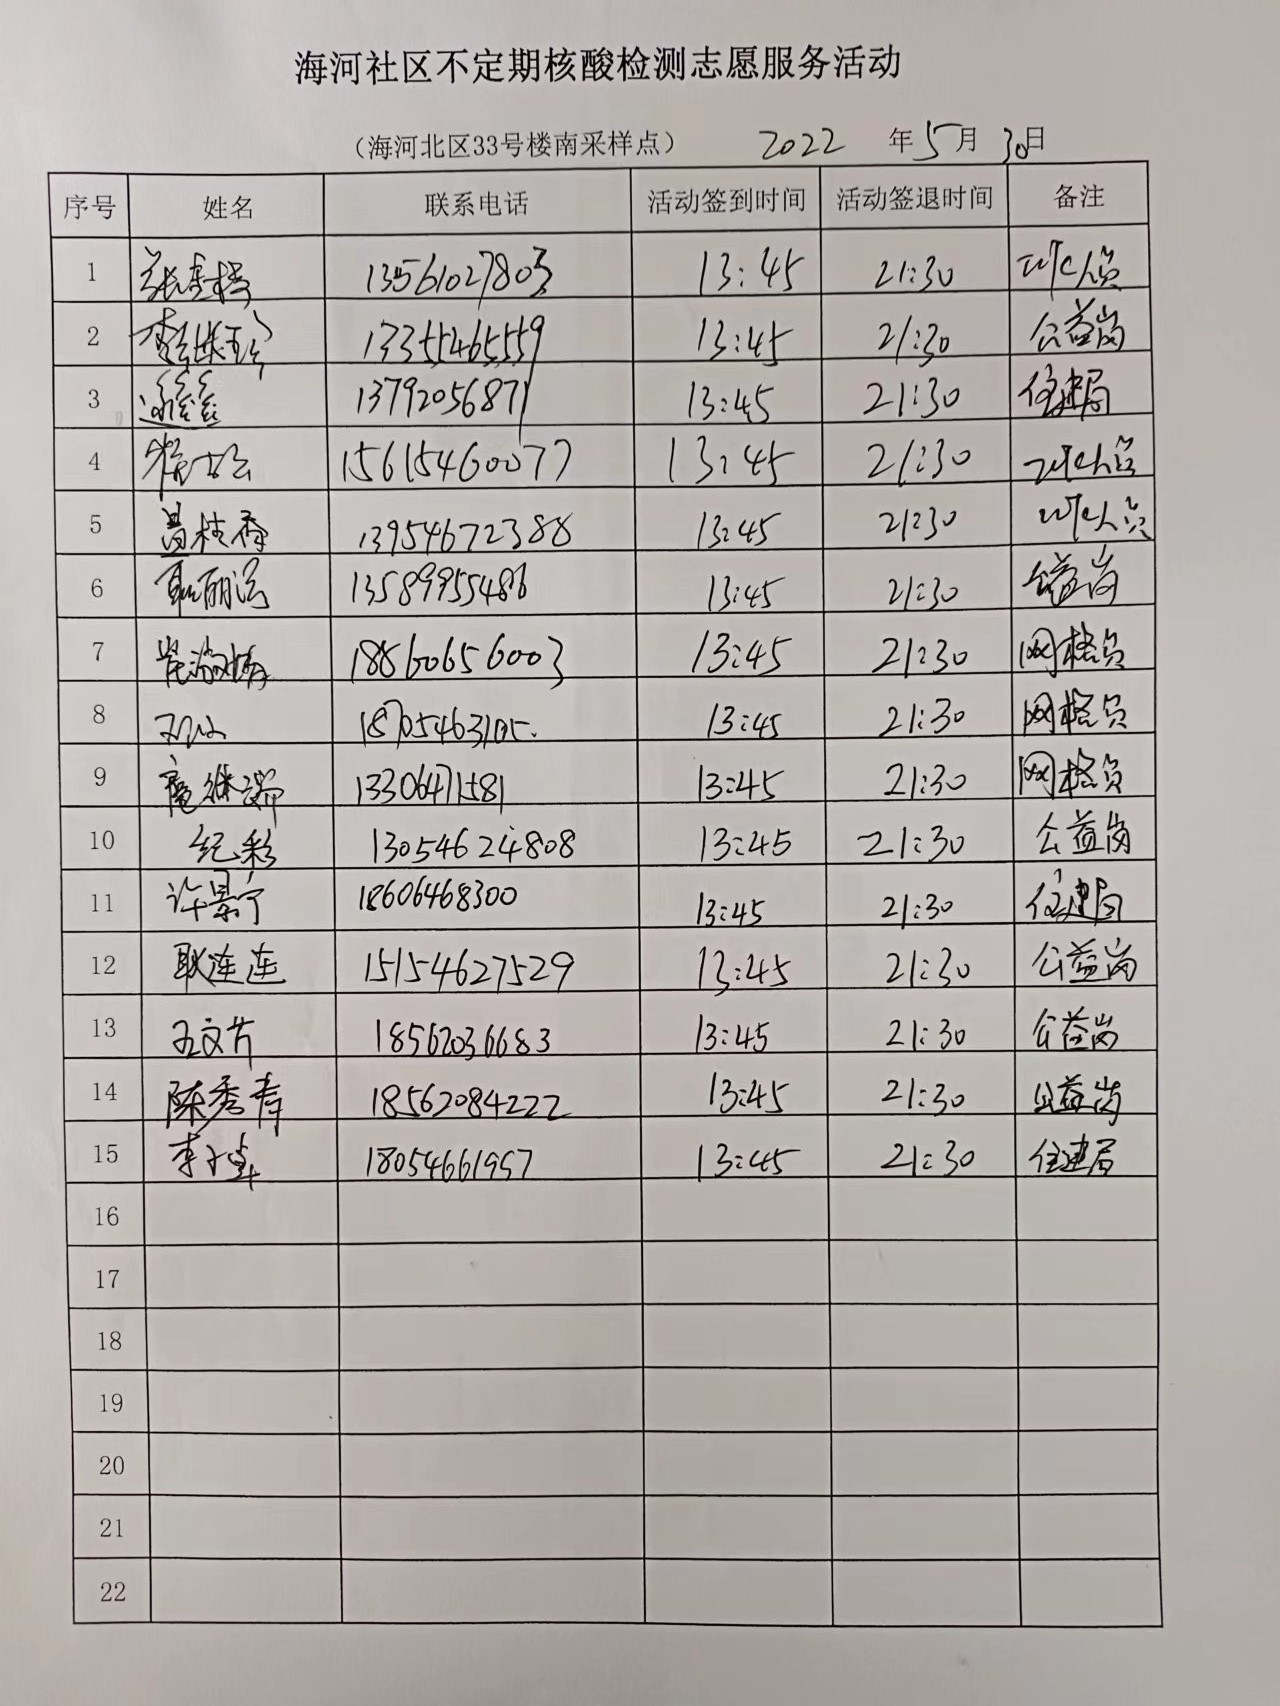 海河社区不定期核酸检测志愿服务活动
（海河北区33号楼南采样点） 2022 年 5 月 30 日
序号 姓名 联系电话 活动签到时间 活动签退时间 备注
1 13561027803 13:45 21:30
2 13355465559 13:45 21:30 公益岗
3 13792056871 13:45 21:30 住建局
4 15615460077 13:45 21:30
5 13954672388 13:45 21:30
6 13589955486 13:45 21:30 公益岗
7 18860656003 13:45 21:30 网格员
8 18705463105. 13:45 21:30 网格员
9 13306471581 13:45 21:30 网格员
10 纪彩 13054624808 13:45 21:30 公益岗
11 许景宁 18606468300 13:45 21:30 住建局
12 耿连连 15154627529 13:45 21:30 公益岗
13 18562036683 13:45 21:30 公益岗
14 陈秀青 18562084222 13:45 21:30 公益岗
15 18054661957 13:45 21:30 住建局
16
17
18
19
20
21
22